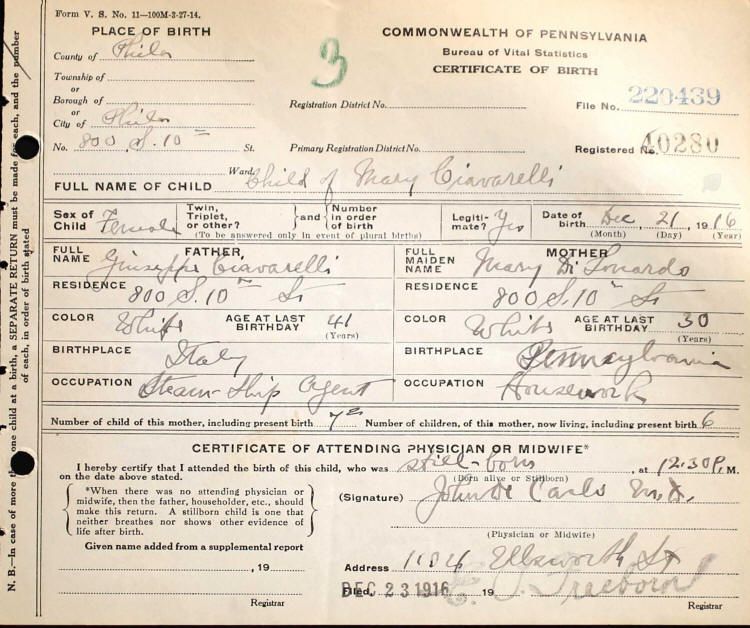 Form V. S. No. 11—100M-3-27-14.
PLACE OF BIRTH
County of Phila
Township of
or
Borough of
or
City of Phila
No. 800 S. 10th St.
Ward.
3
COMMONWEALTH OF PENNSYLVANIA
Bureau of Vital Statistics
CERTIFICATE OF BIRTH
Registration District No.
File No. 220439
Primary Registration District No.
Registered No. 40280
FULL NAME OF CHILD Child of Mary Ciavarelli
Sex of Child Female
Twin, Triplet, or other? and Number in order of birth
(To be answered only in event of plural births)
Legiti-mate? Yes
Date of birth Dec 21 1916
(Month) (Day) (Year)
FATHER,
FULL NAME Giuseppe Ciavarelli
RESIDENCE 800 S. 10th St
COLOR White AGE AT LAST BIRTHDAY 41
(Years)
BIRTHPLACE Italy
OCCUPATION Steam-Ship Agent
MOTHER
FULL MAIDEN NAME Mary Di Lonardo
RESIDENCE 800 S. 10th St
COLOR White AGE AT LAST BIRTHDAY 30
(Years)
BIRTHPLACE Pennsylvania
OCCUPATION Housework
Number of child of this mother, including present birth 7th Number of children, of this mother, now living, including present birth 6
CERTIFICATE OF ATTENDING PHYSICIAN OR MIDWIFE*
I hereby certify that I attended the birth of this child, who was still-born, at 12.30 P. M.
on the date above stated. (Born alive or Stillborn)
*When there was no attending physician or
midwife, then the father, householder, etc., should
make this return. A stillborn child is one that
neither breathes nor shows other evidence of
life after birth.
(Signature) John De Carlo M.D.
(Physician or Midwife)
Given name added from a supplemental report
, 19
Registrar
Address 1104 Ellsworth St
Filed DEC 23 1916 19
Registrar
N. B.—In case of more than one child at a birth, a SEPARATE RETURN must be made for each, and the number
of each, in order of birth stated